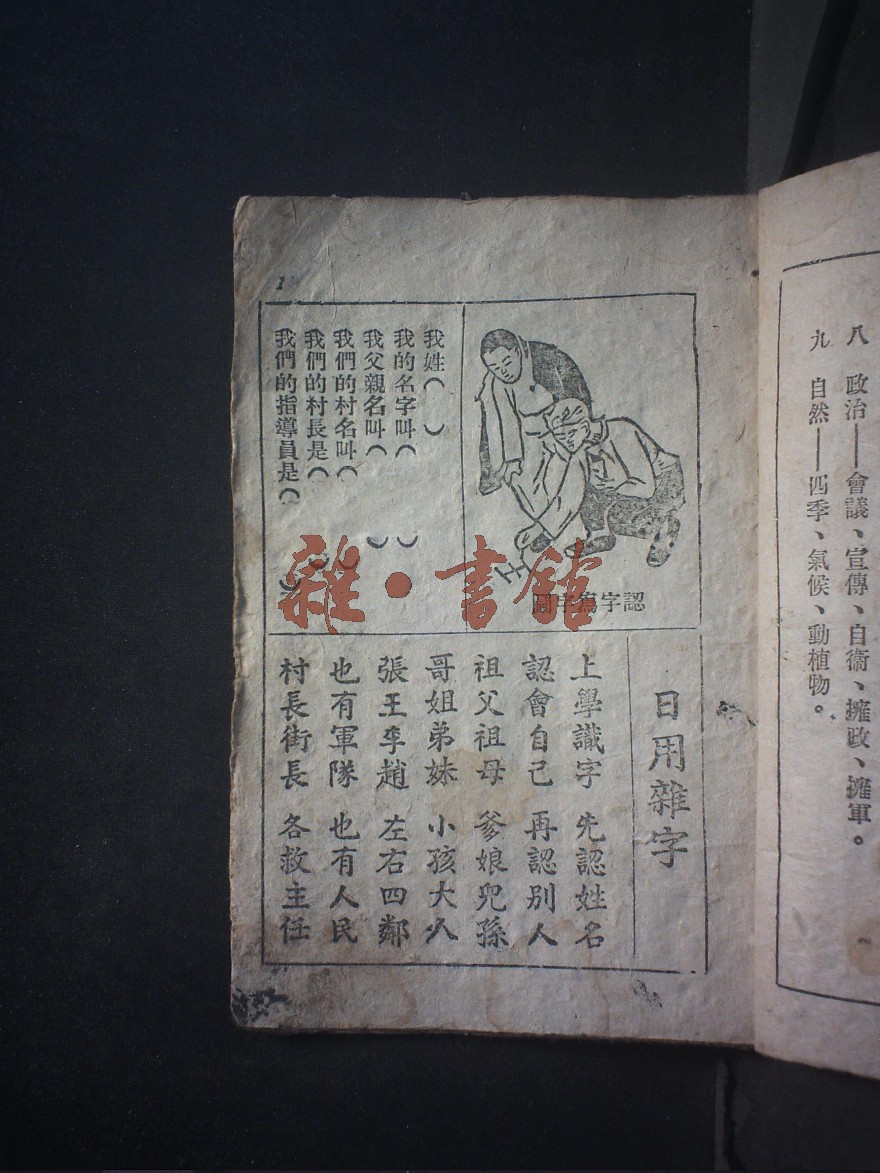 八　政治——會議、宣傳、自衞、擁政、擁軍。
九　自然——四季、氣候、動植物。
1
認字寫字圖
我姓（　）
我的名字叫（　）
我父親名叫（　）
我們的村名叫（　）
我們的村長是（　）
我們的指導員是（　）
日用雜字
上學識字　先認姓名
認會自己　再認別人
祖父祖母　爹娘兒孫
哥姐弟妹　小孩大人
張王李趙　左右四鄰
也有軍隊　也有人民
村長街長　各救主任
雜·書館